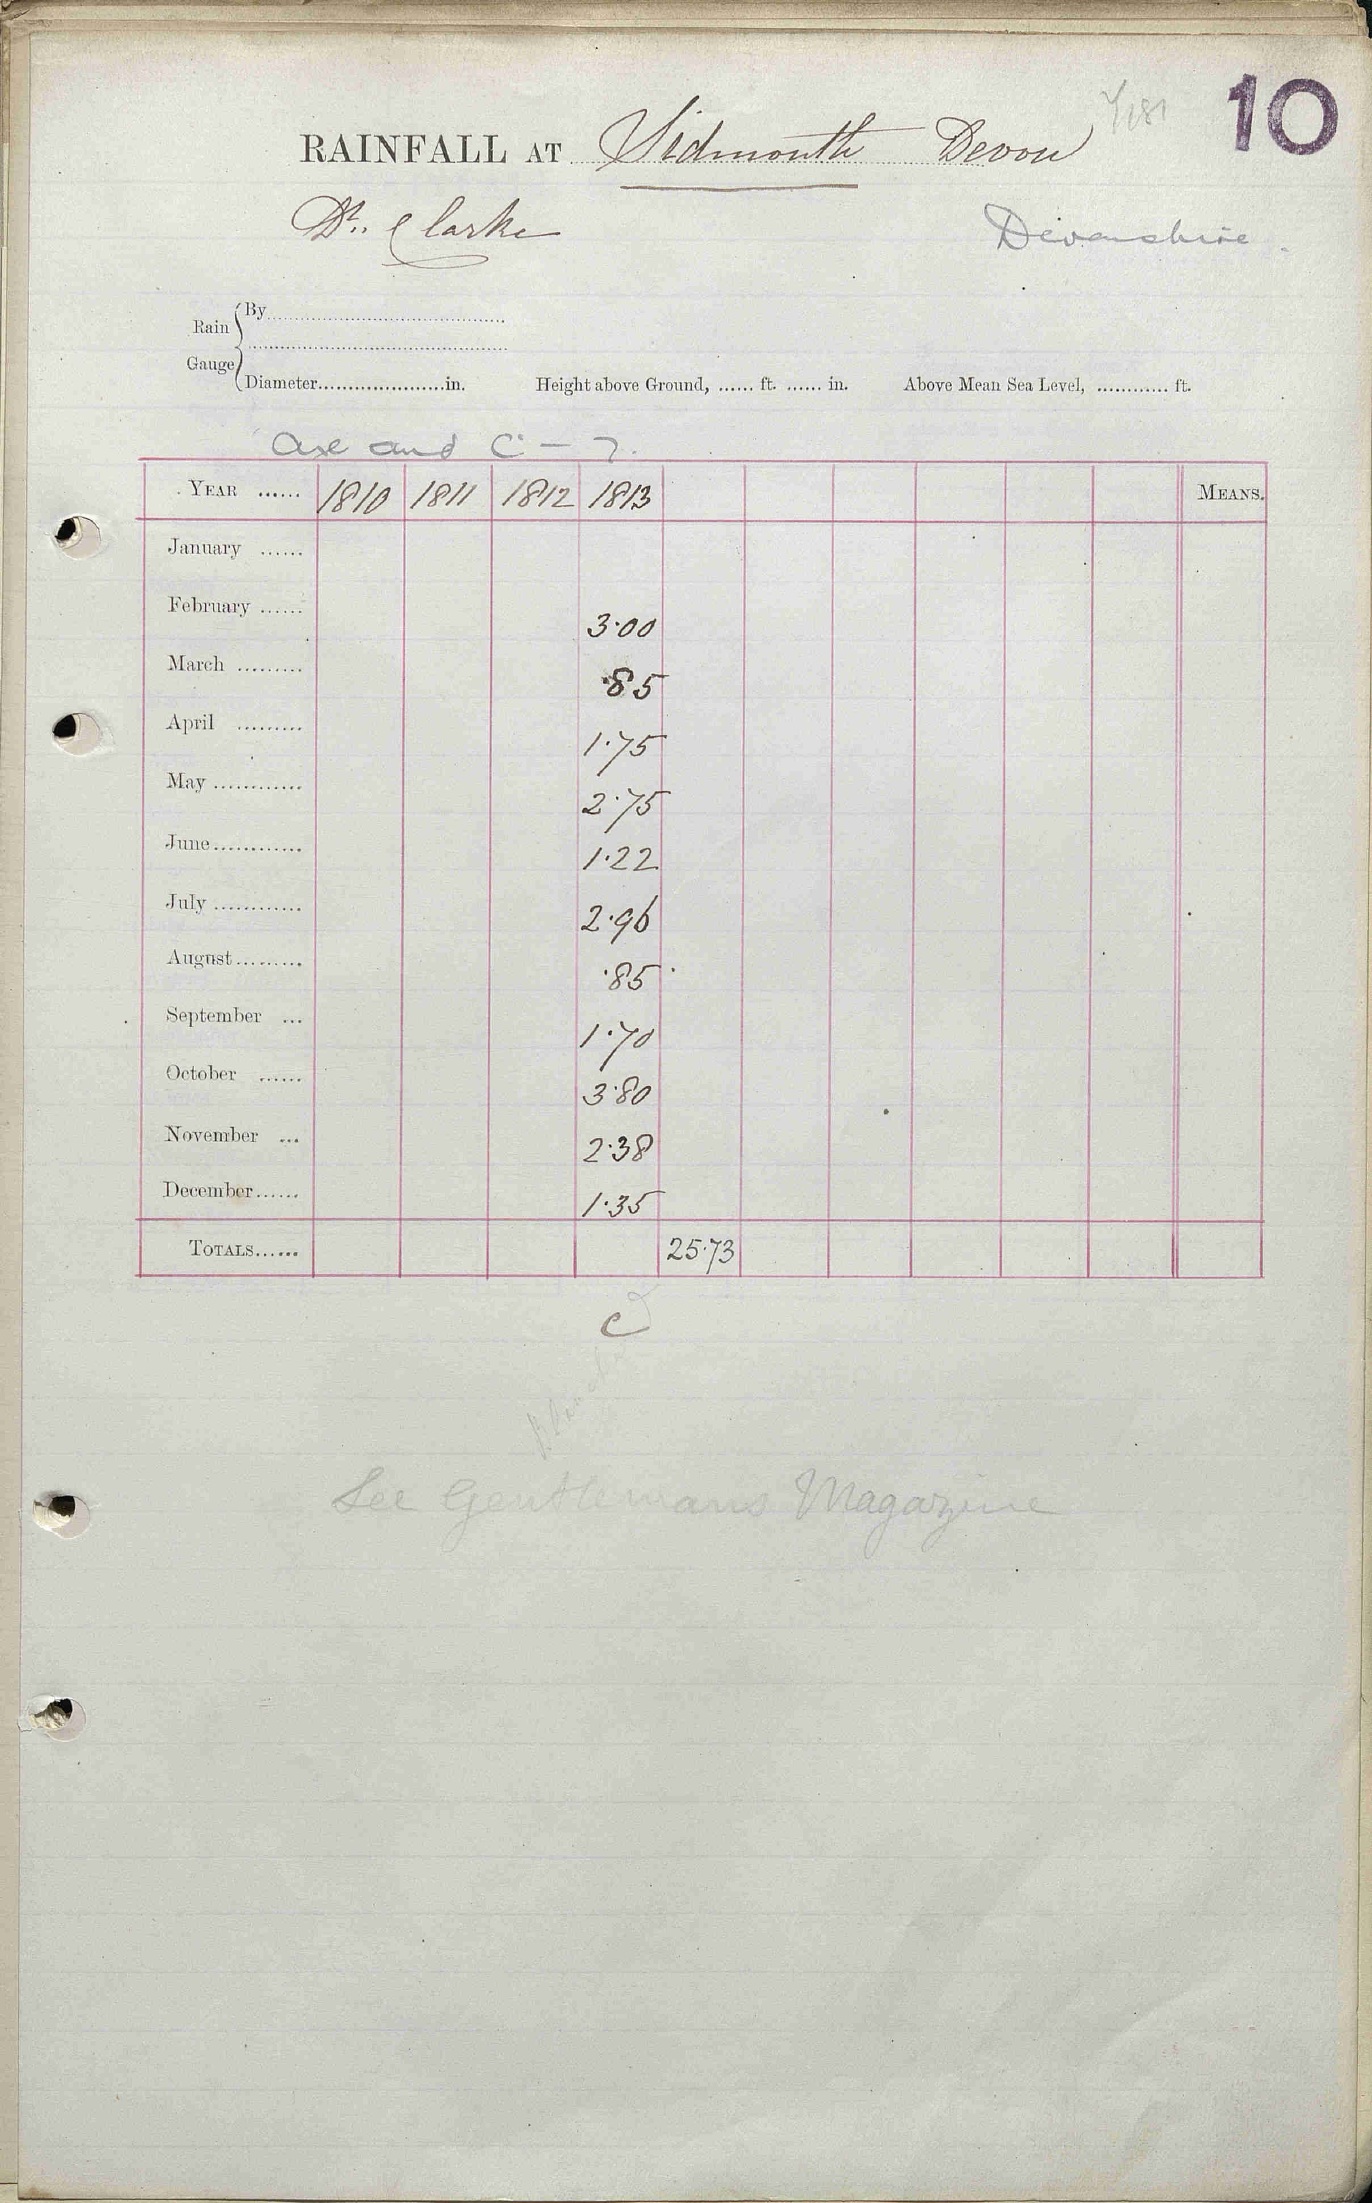 10
RAINFALL AT Sidmouth Devon
Dr. Clarke Devonshire.
Rain Gauge
By
Diameter in. Height above Ground, ...... ft. ...... in. Above Mean Sea Level, ............ ft.
Axe and C - 7.
YEAR ...... 1810 1811 1812 1813 MEANS.
January ......
February ...... 3.00
March ......... .85
April ......... 1.75
May ............ 2.75
June............ 1.22
July ............ 2.96
August......... .85
September ... 1.70
October ...... 3.80
November ... 2.38
December...... 1.35
TOTALS...... 25.73
C
See Gentlemans Magazine